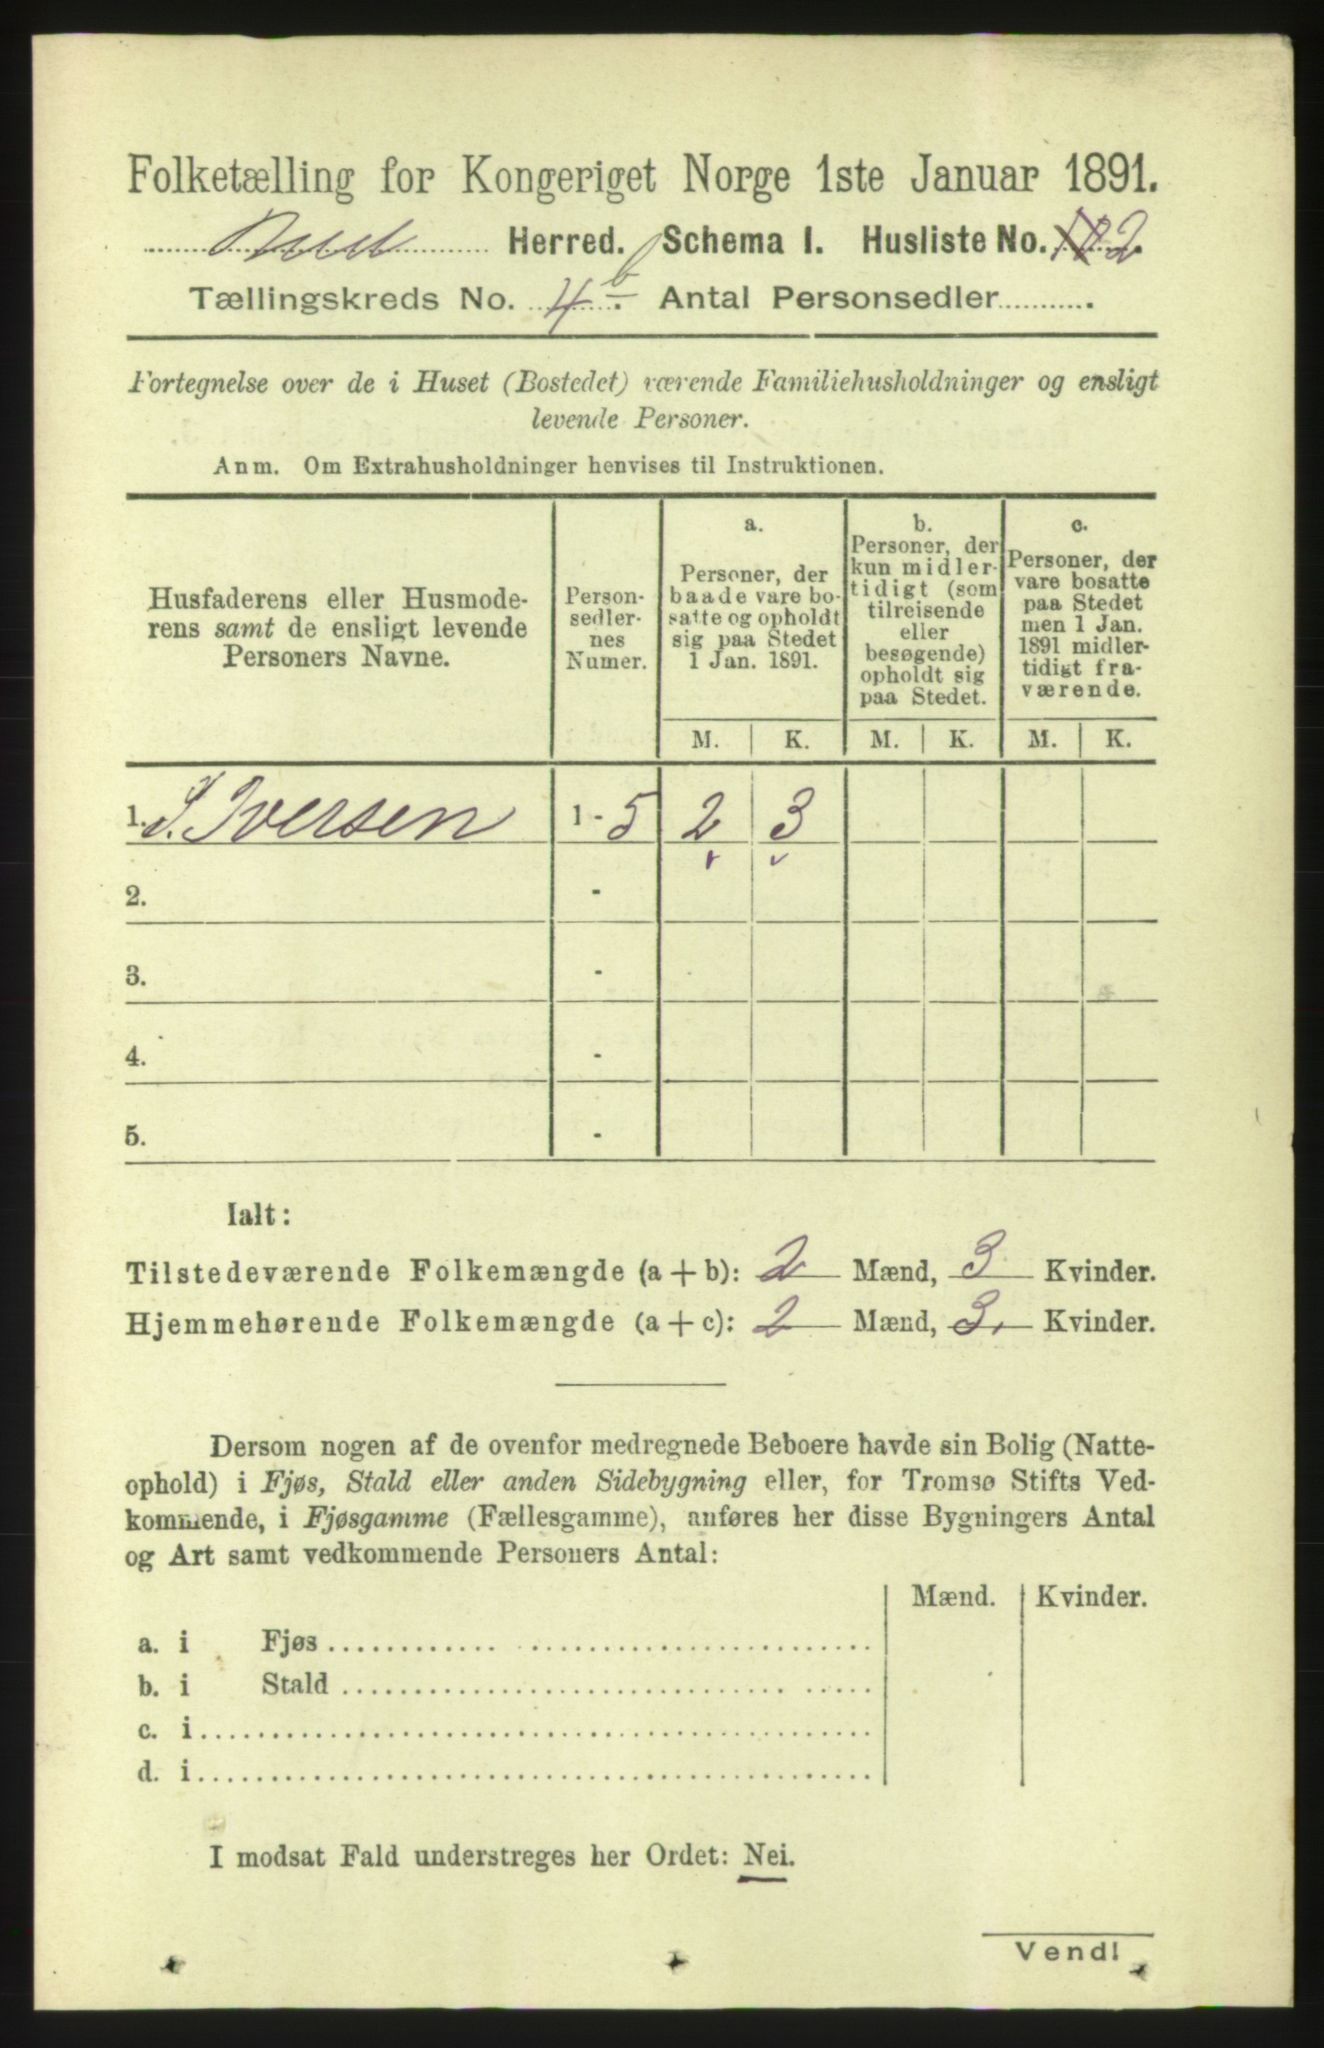 Folketælling for Kongeriget Norge 1ste Januar 1891.
Bud Herred. Schema I. Husliste No. 2
Tællingskreds No. 4 b. Antal Personsedler .
Fortegnelse over de i Huset (Bostedet) værende Familiehusholdninger og ensligt
levende Personer.
Anm. Om Extrahusholdninger henvises til Instruktionen.
Husfaderens eller Husmode-
rens samt de ensligt levende
Personers Navne.
Person-
sedler-
nes
Numer.
a.
Personer, der
baade vare bo-
satte og opholdt
sig paa Stedet
1 Jan. 1891.
b.
Personer, der
kun midler-
tidigt (som
tilreisende
eller
besøgende)
opholdt sig
paa Stedet.
c.
Personer, der
vare bosatte
paa Stedet
men 1 Jan.
1891 midler-
tidigt fra-
værende.
M. K. M. K. M. K.
1. S. Iversen 1 - 5 2 3
2. -
3. -
4. -
5. -
Ialt:
Tilstedeværende Folkemængde (a + b): 2 Mænd, 3 Kvinder.
Hjemmehørende Folkemængde (a + c): 2 Mænd, 3. Kvinder.
Dersom nogen af de ovenfor medregnede Beboere havde sin Bolig (Natte-
ophold) i Fjøs, Stald eller anden Sidebygning eller, for Tromsø Stifts Ved-
kommende, i Fjøsgamme (Fællesgamme), anføres her disse Bygningers Antal
og Art samt vedkommende Personers Antal:
Mænd. Kvinder.
a. i Fjøs
b. i Stald
c. i
d. i
I modsat Fald understreges her Ordet: Nei.
Vend!